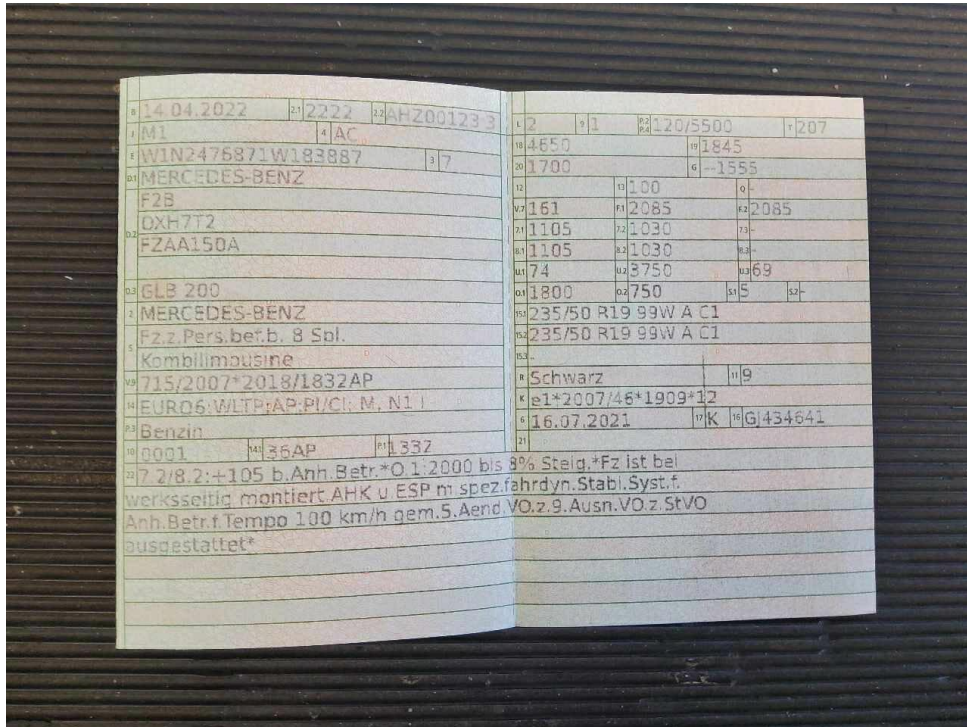 B 14.04.2022 2.1 2222 2.2 AHZ00123 3
J M1 4 AC
E W1N2476871W183887 3 7
D.1 MERCEDES-BENZ
F2B
D.2 DXH7T2
FZAA150A
D.3 GLB 200
2 MERCEDES-BENZ
5 Fz.z.Pers.bef.b. 8 Spl.
Kombilimousine
V.9 715/2007*2018/1832AP
14 EURO6;WLTP;AP;PI/CI; M, N1 I
P.3 Benzin
10 0001 14.1 36AP P.1 1332
L 2 9 1 P.2 P.4 120/5500 T 207
18 4650 19 1845
20 1700 G --1555
12 13 100 Q -
V.7 161 F.1 2085 F.2 2085
7.1 1105 7.2 1030 7.3 -
8.1 1105 8.2 1030 8.3 -
U.1 74 U.2 3750 U.3 69
O.1 1800 O.2 750 S.1 5 S.2 -
15.1 235/50 R19 99W A C1
15.2 235/50 R19 99W A C1
15.3 -
R Schwarz 11 9
K e1*2007/46*1909*12
6 16.07.2021 17 K 16 GJ434641
21
22 7.2/8.2:+105 b.Anh.Betr.*O.1:2000 bis 8% Steig.*Fz ist bei
werksseitig montiert.AHK u.ESP m.spez.fahrdyn.Stabi.Syst.f.
Anh.Betr.f.Tempo 100 km/h gem.5.Aend.VO.z.9.Ausn.VO.z.StVO
ausgestattet*